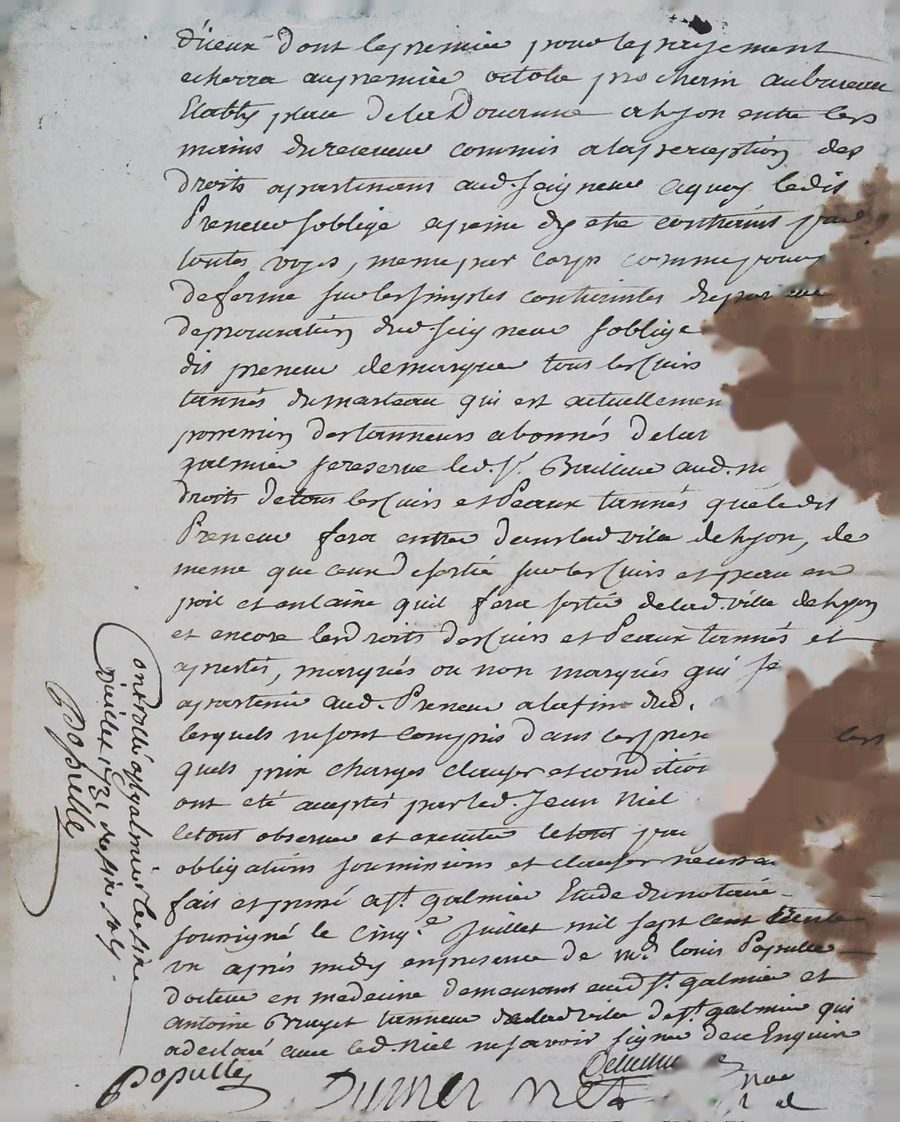 d'iceux dont le premier pour le payement
echerra au premier octobre prochain au bureau
Etably place de la Douanne a lyon entre les
mains du receveur commis a la perception des
droits apartenans aud. seigneur a quoy ledit
Preneur soblige a peine dy etre contraint par
toutes voyes, meme par corps comme pour
de ferme sur les simples contraintes
de procuration dud seigneur soblige
dit preneur de marquer tous les Cuirs
tannés du marteau qui est actuellement
des tanneurs abonnés de la
galmier se reserve led. Sr. aud.
droits de tous les Cuirs et Peaux tannés que ledit
Preneur fera entrer dans lad ville de lyon, de
meme que ceux de sortie sur les Cuirs et peau en
poil et en laine quil fera sortir de lad. ville de lyon
et encore les Droits des Cuirs et Peaux tannés et
apretés, marqués ou non marqués qui se
apartenir aud. Preneur a la fin dud.
lesquels ne sont compris dans les les
quels prix charges clauses et condition
ont eté acceptés par led. Jean Niel
le tout observer et executer le tout par
obligations soumissions et clauses necessa
fait et passé a St. galmier Etude du notaire
sousigné le cinqe. Juillet mil sept cent trente
un après midy en presence de Mr. louis Populle
docteur en medecine demeurant aud St. galmier et
antoine Bruyet tanneur de lad ville de St. galmier qui
a declaré avec led Niel ne savoir signer de ce Enquis
Populle
Controllé a St galmier le six
Juillet 1731 six sols.
Populle